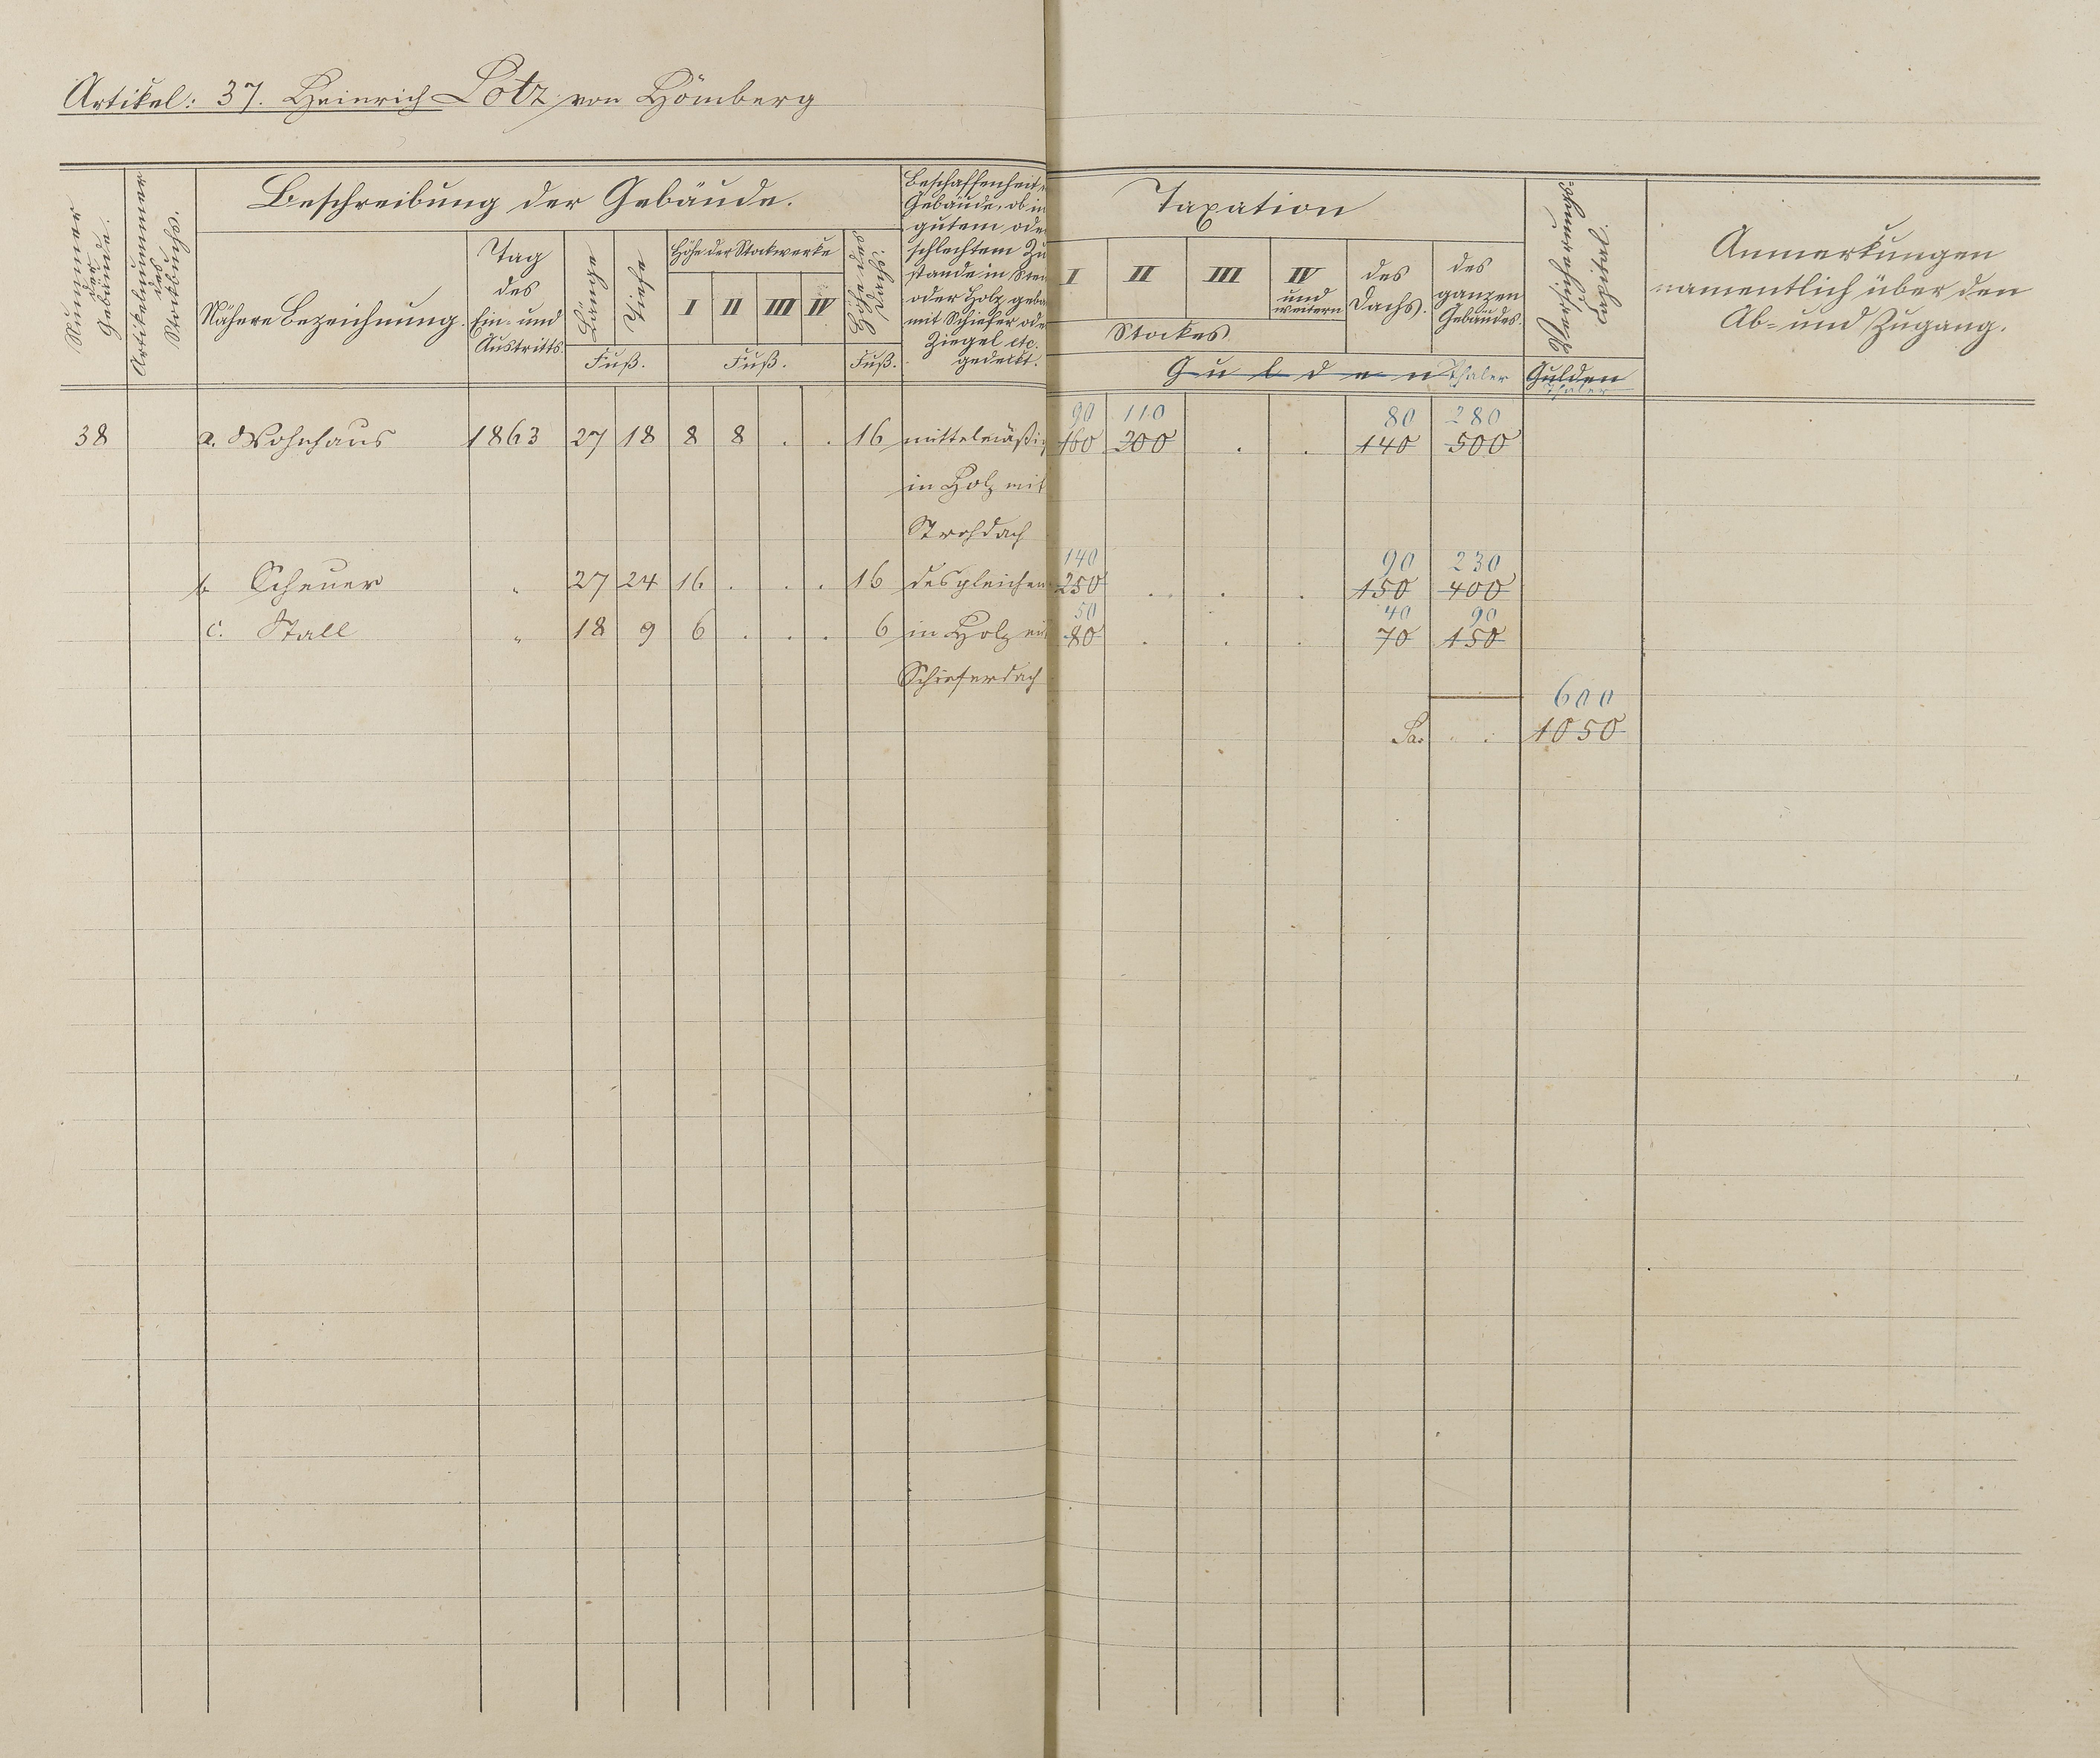 Artikel: 37. Heinrich Lotz von Hömberg
Nummer der Gebäude.
Artikelnummer des Stockbuchs.
Beschreibung der Gebäude.
Nähere Bezeichnung.
Tag
des
Ein- und
Austritts.
Länge
Tiefe
Fuß.
Höhe der Stockwerke
I II III IV
Fuß.
Höhe des Dachs.
Fuß.
Beschaffenheit
Gebäude, ob in
gutem ode
schlechtem Zu
stande in Stei
oder Holz geba
mit Schiefer ode
Ziegel etc.
gedeckt.
Taxation
I II III IV
und
weitern
Stockes
des
Dachs.
des
ganzen
Gebäudes.
Gulden Thaler
Versicherungs-
capital.
Gulden
Thaler
Anmerkungen
namentlich über den
Ab- und Zugang.
90 110 80 280
38 a. Wohnhaus 1863 27 18 8 8 . . 16 mittelmäßig 160 200 . . 140 500
in Holz mit
Strohdach
140 90 230
b Scheuer " 27 24 16 . . . 16 desgleichen 250 . . . 150 400
50 40 90
c. Stall " 18 9 6 . . . 6 in Holz mit 80 . . . 70 150
Schieferdach
600
Sa. . . 1050